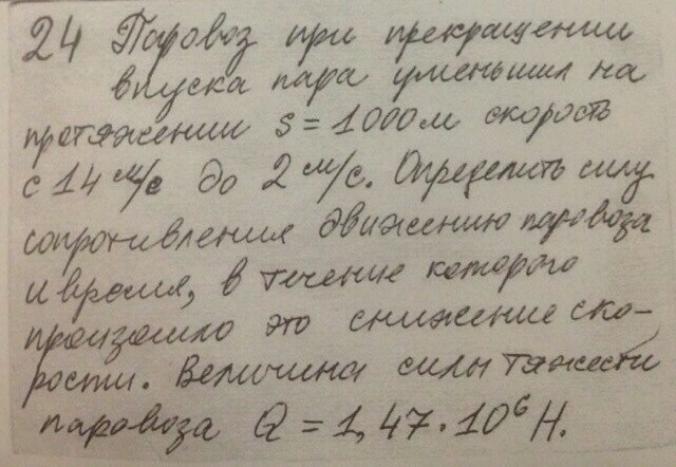 24 Паровоз при прекращении
впуска пара уменьшил на
протяжении s = 1000 м скорость
с 14 м/с до 2 м/с. Определить силу
сопротивления движению паровоза
и время, в течение которого
произошло это снижение ско-
рости. Величина силы тяжести
паровоза Q = 1,47 · 10⁶ Н.